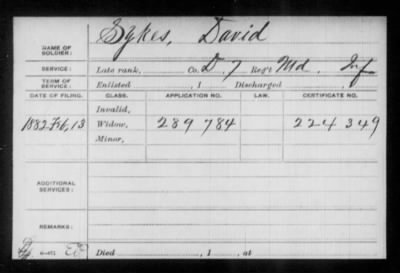 NAME OF SOLDIER: Sykes, David
SERVICE: Late rank, Co. D, 7 Reg't Md. Inf
TERM OF SERVICE: Enlisted , 1 Discharged
DATE OF FILING. CLASS. APPLICATION NO. LAW. CERTIFICATE NO.
Invalid,
1882 Feb, 13 Widow, 289 784 224 349
Minor,
ADDITIONAL SERVICES:
REMARKS:
Died , 1 , at